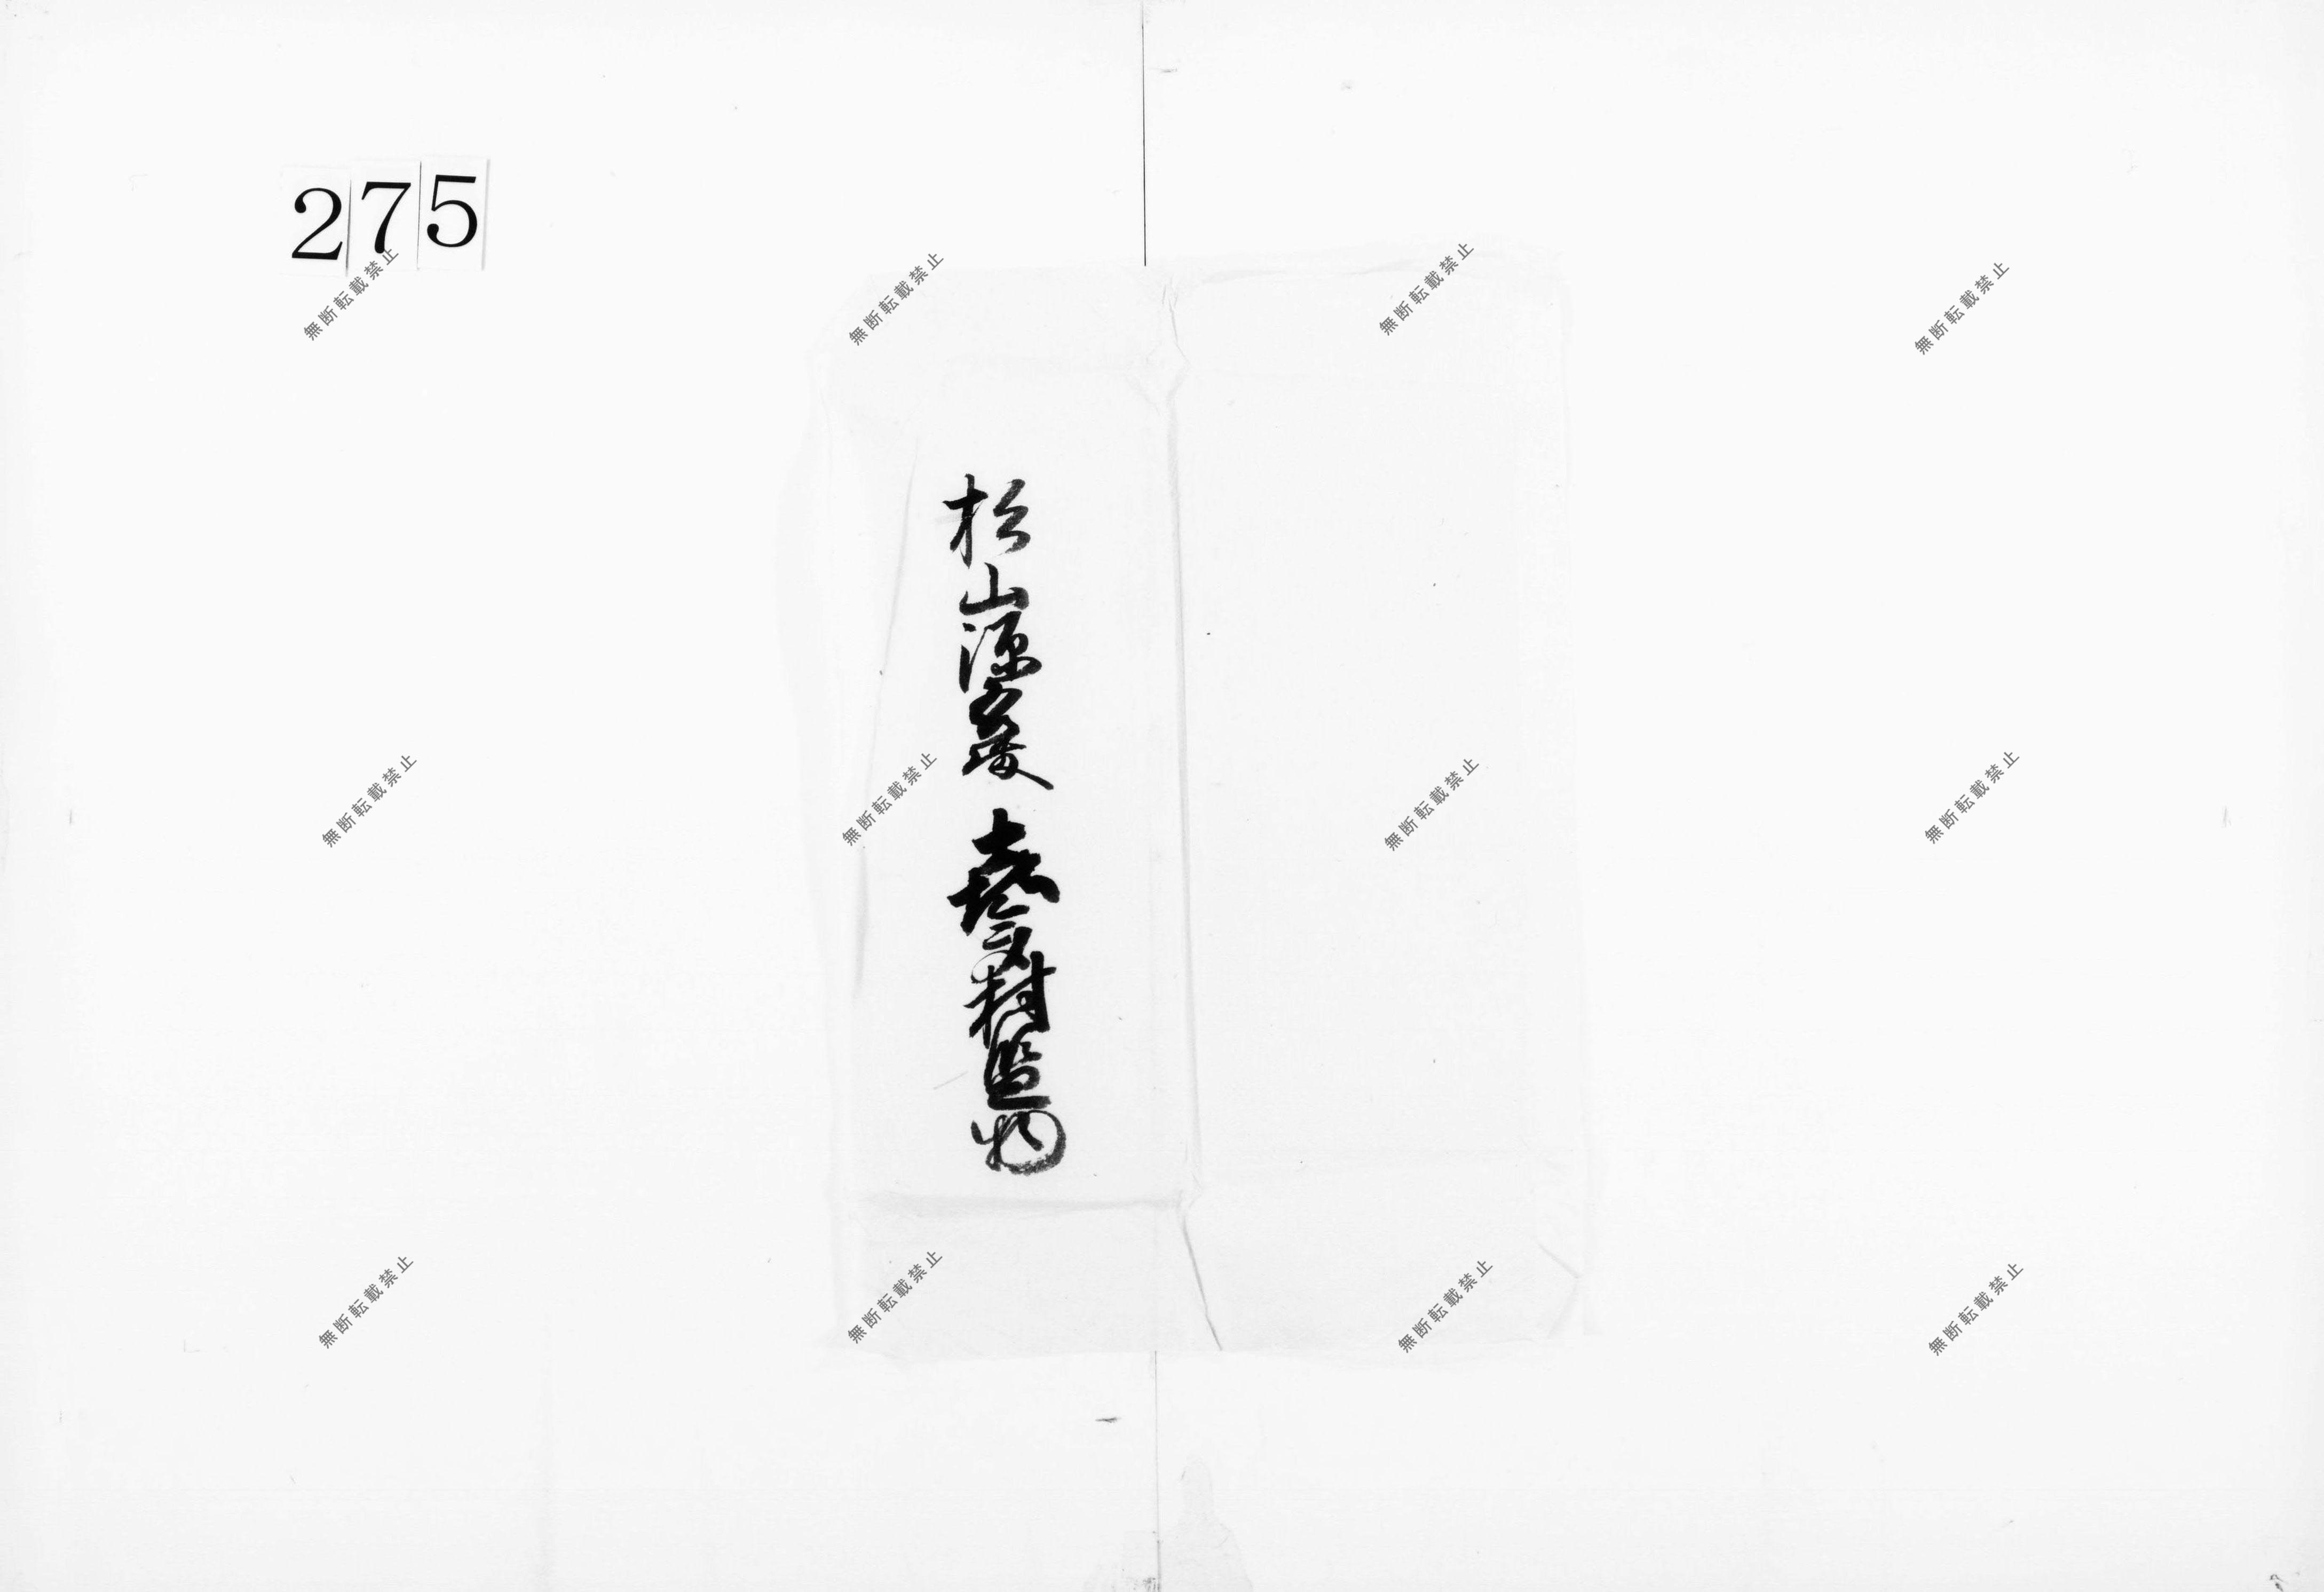 275
松山源
村監物
無断転載禁止
無断転載禁止
無断転載禁止
無断転載禁止
無断転載禁止
無断転載禁止
無断転載禁止
無断転載禁止
無断転載禁止
無断転載禁止
無断転載禁止
無断転載禁止